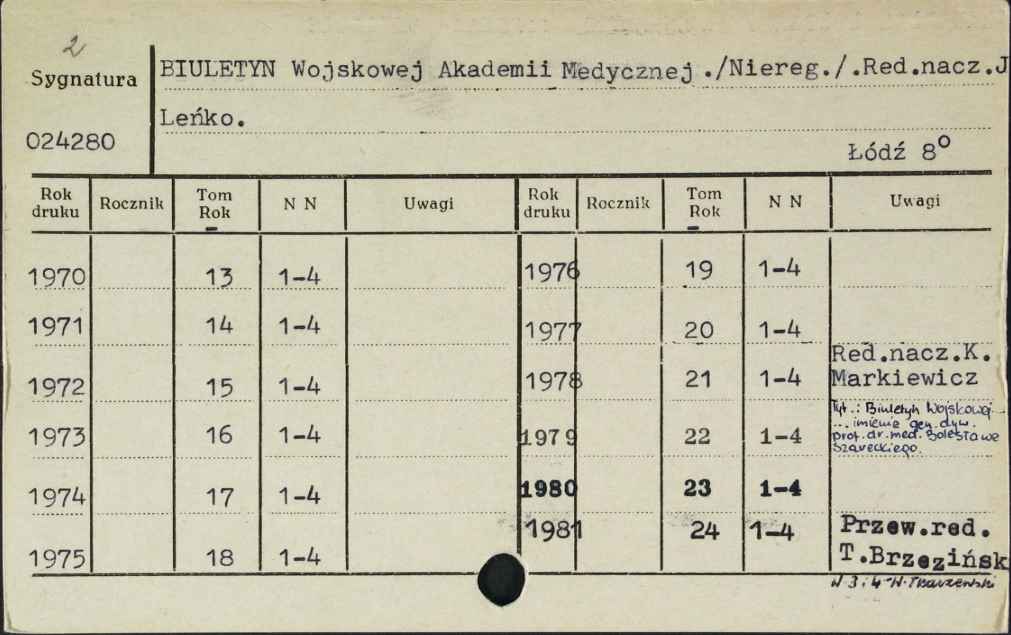 2
Sygnatura
024280
BIULETYN Wojskowej Akademii Medycznej ./Niereg./.Red.nacz.J
Leńko.
Łódź 8°
Rok druku Rocznik Tom Rok N N Uwagi Rok druku Rocznik Tom Rok N N Uwagi
1970 13 1-4 1976 19 1-4
1971 14 1-4 1977 20 1-4
Red.nacz.K.
1972 15 1-4 1978 21 1-4 Markiewicz
Tyt.: Biuletyn Wojskowej...
... imienia gen. dyw.
1973 16 1-4 1979 22 1-4 prof. dr. med. Bolesława
Szareckiego.
1974 17 1-4 1980 23 1-4
1981 24 1-4 Przew.red.
1975 18 1-4 T.Brzezińsk
W 3 i 4 W.